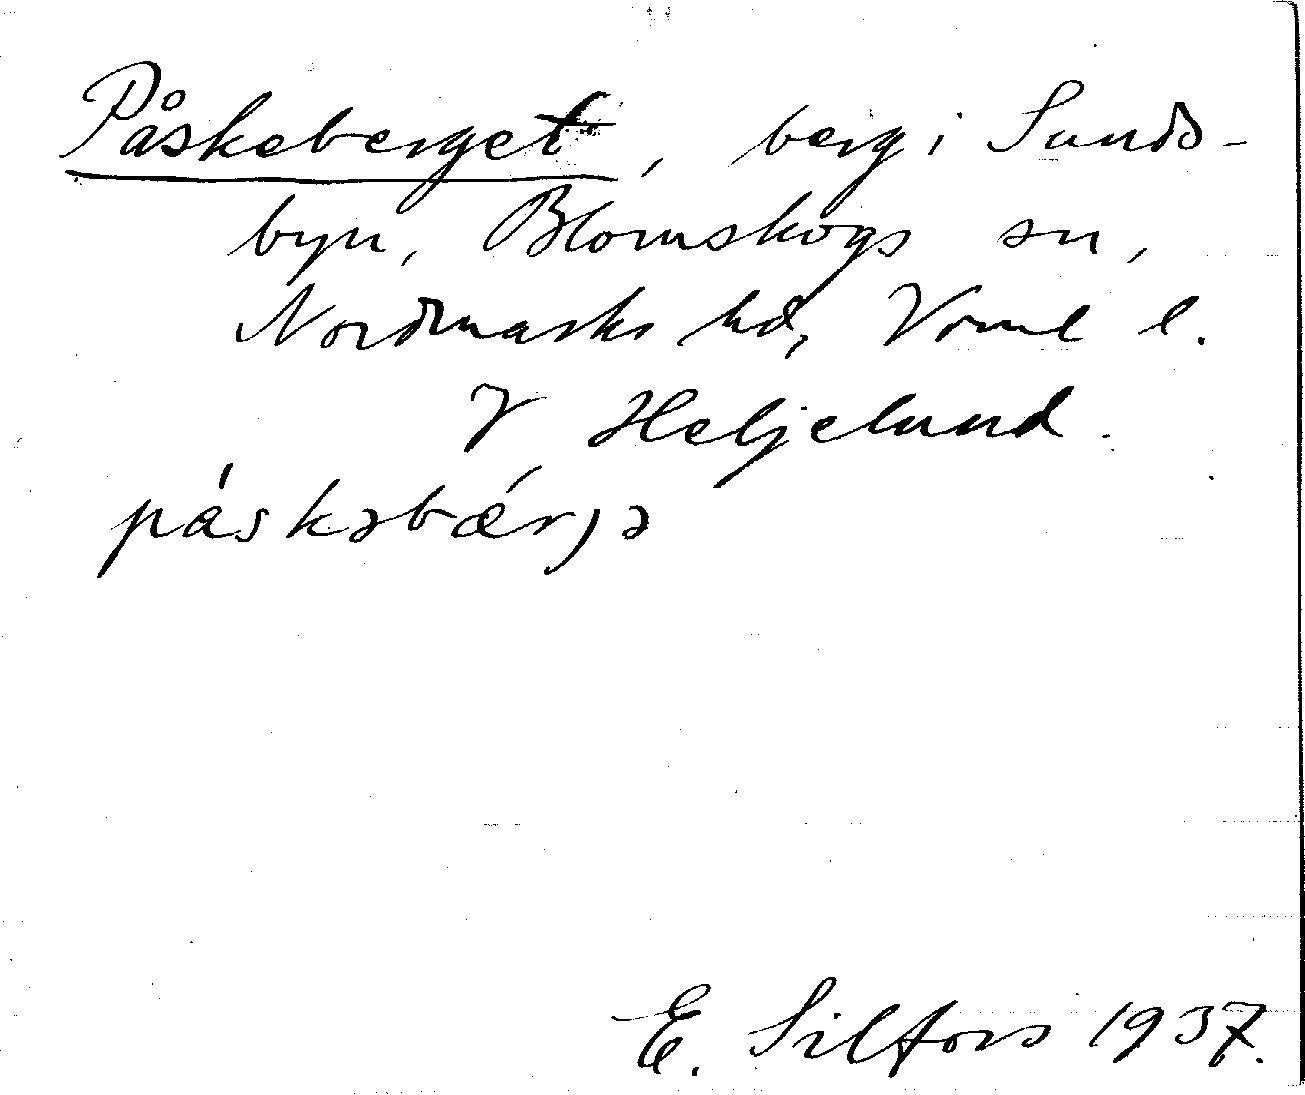 Påskeberget, berg i Sunds-
byn, Blomskogs sn,
Nordmarks hd, Vrml l.
V Heljelund.
påskəbǽrjə
E. Silfors 1937.